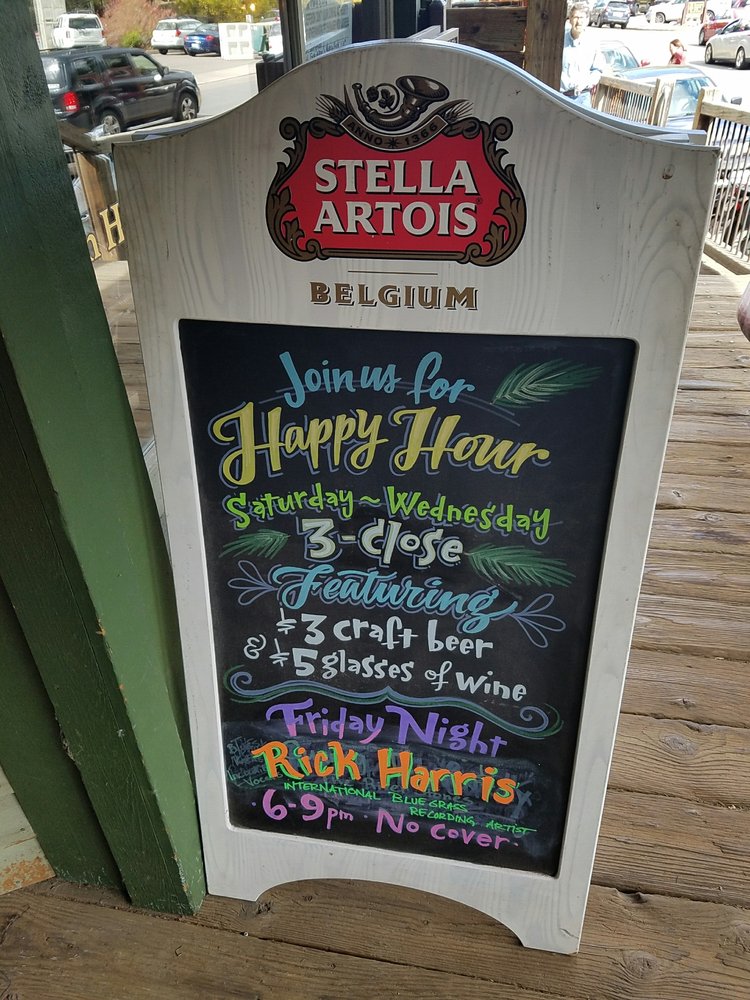 ANNO * 1366
STELLA
ARTOIS
BELGIUM
Join us for
Happy Hour
Saturday ~ Wednesday
3-close
Featuring
$3 craft beer
& $5 glasses of wine
Friday Night
Rick Harris
INTERNATIONAL BLUE GRASS
RECORDING ARTIST
· 6-9pm · No Cover ·